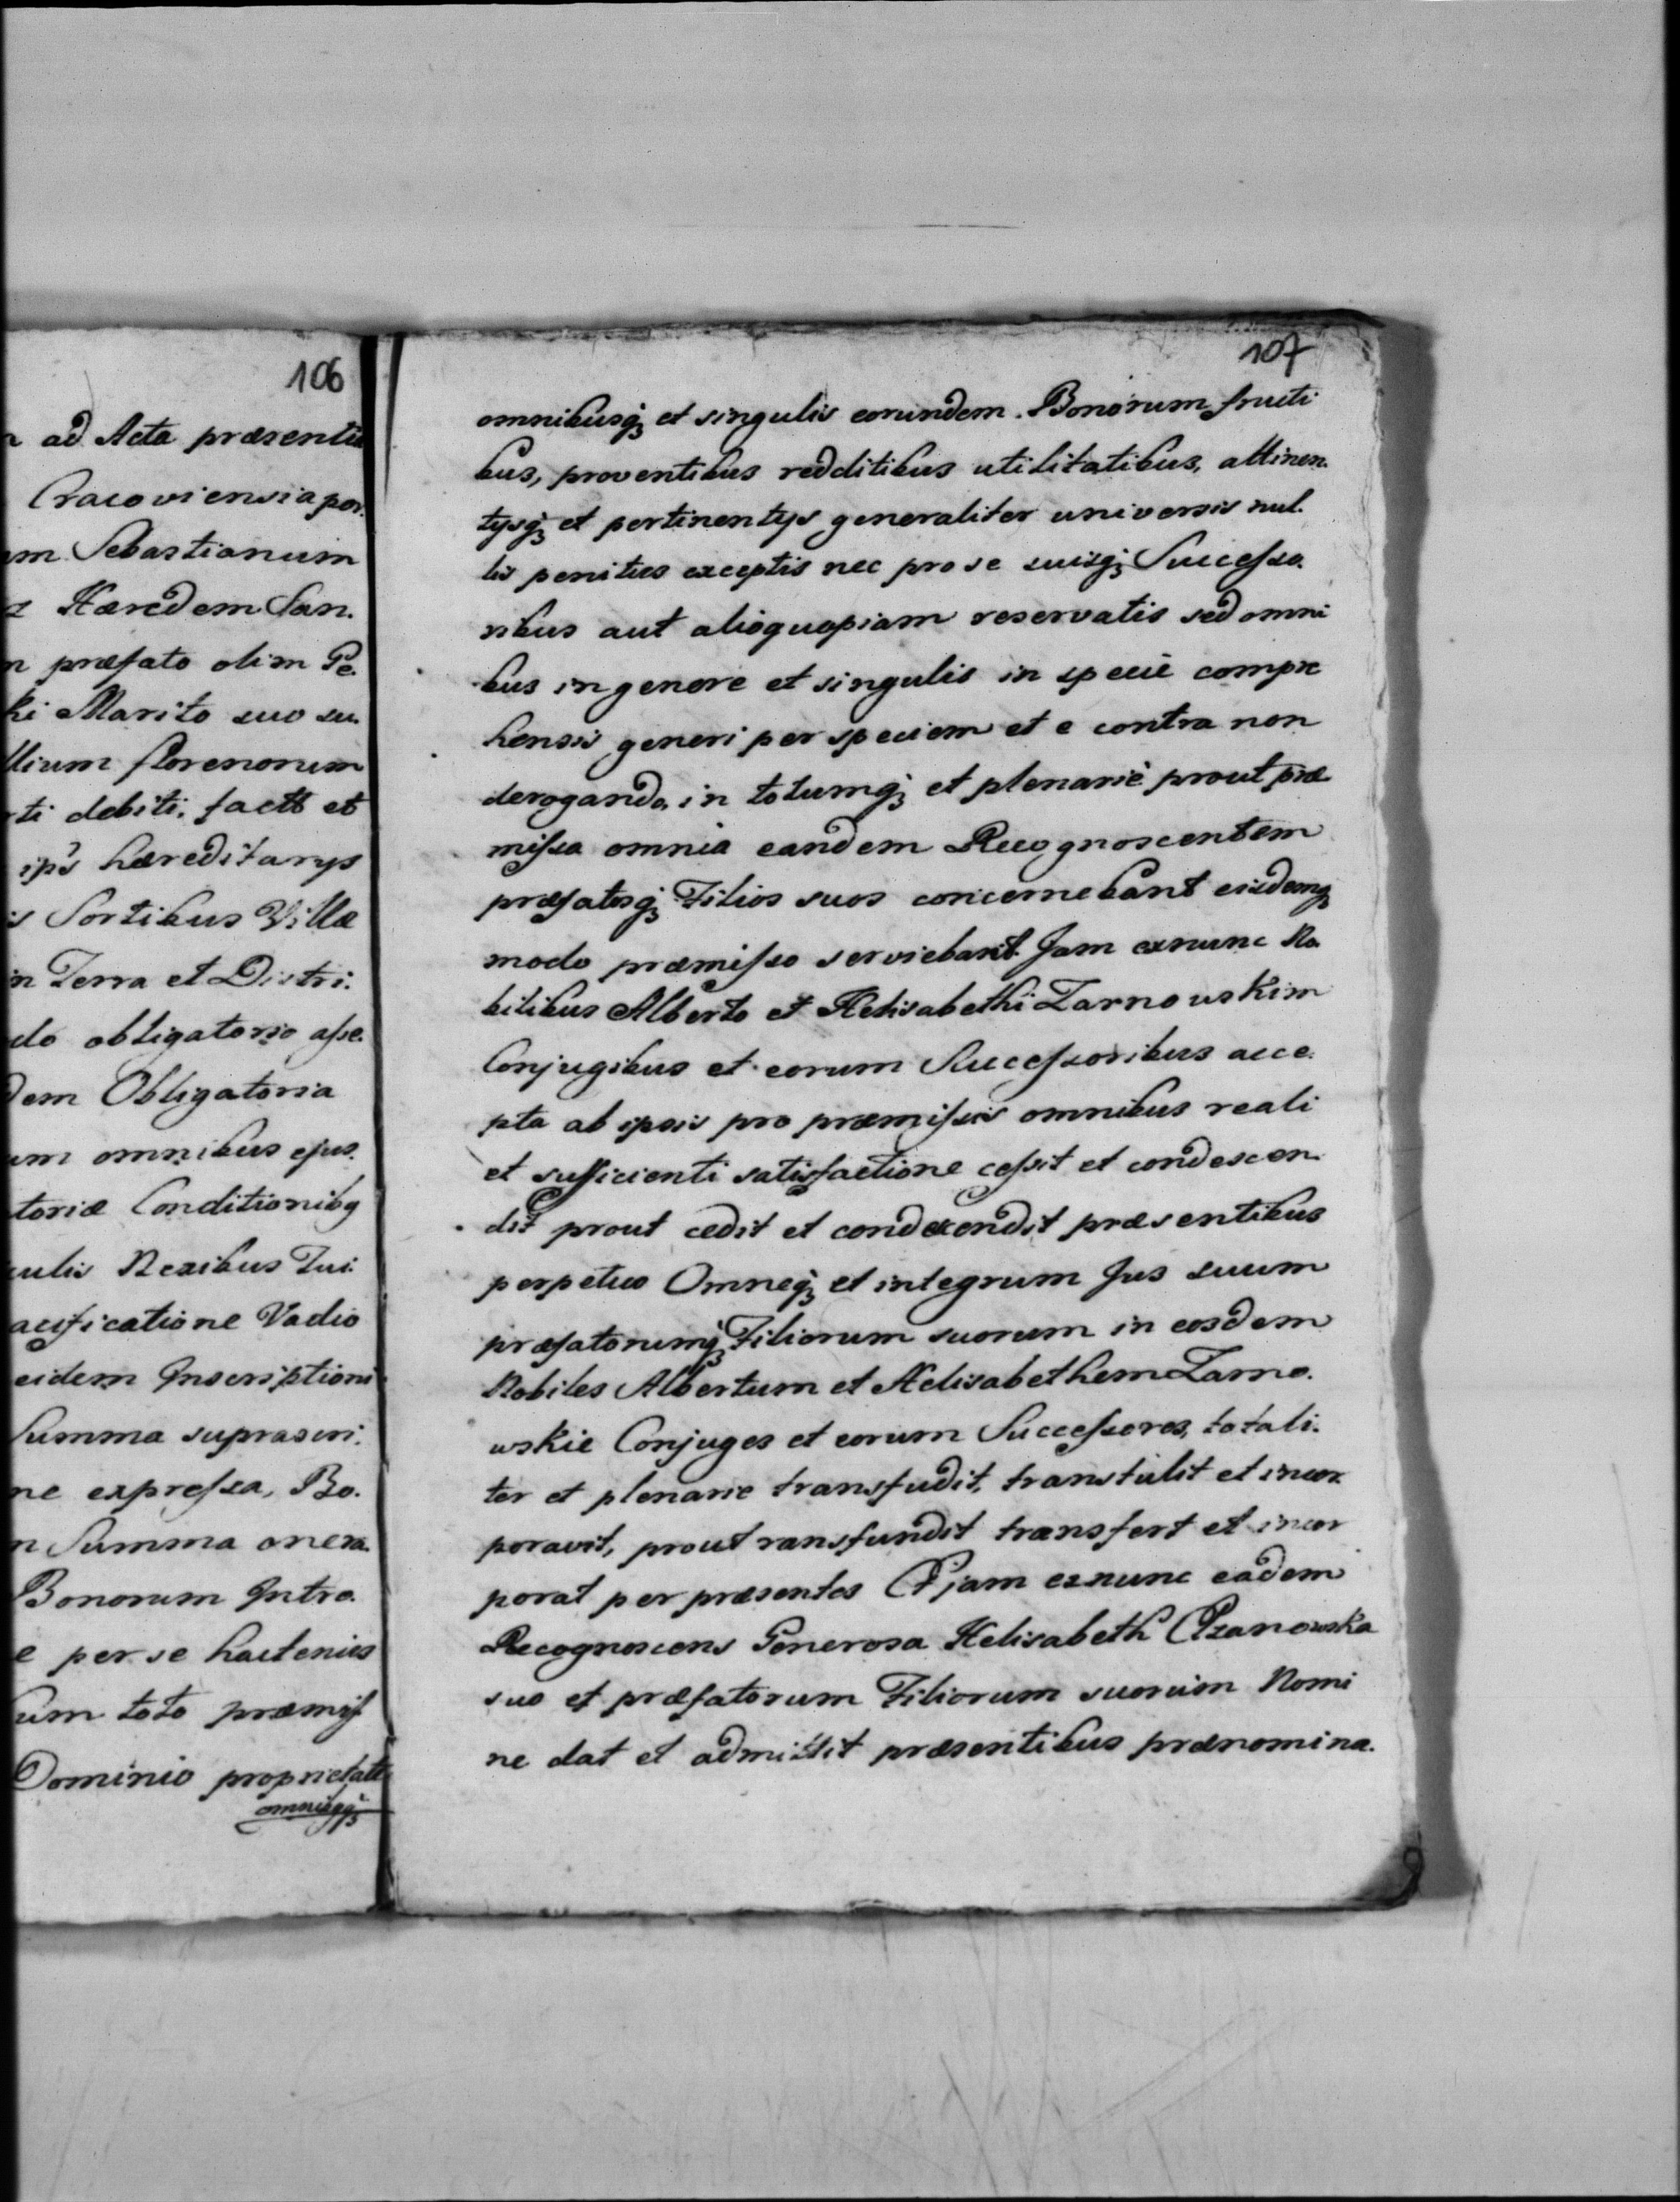 106
ad Acta præsentia
Cracoviensia per.
um Sebastianum
Hæredem San.
præfato olim Pe.
ki Marito suo su.
llium florenorum
rti debiti, factæ et
ips hæreditarys
is Sortibus Villæ
in Terra et Distri.
do obligatorio asse.
dem Obligatoria
um omnibus ejus.
toriæ Conditionibq
culis Nexibus Tui.
acificatione Vadio
eidem Inscriptioni
Summa suprascri.
ne expressa, Bo.
n Summa onera.
Bonorum Intro.
e per se hactenus
cum toto præmiss
Dominio proprietate
omnibqq
107
omnibusq et singulis eorundem Bonorum fructi
bus, proventibus redditibus utilitatibus, attinen.
tysq et pertinentys generaliter universis nul.
lis penitus exceptis nec pro se suisq Successo.
ribus aut alioquopiam reservatis sed omni
bus in genere et singulis in specie compre
hensis generi per speciem et e contra non
derogando, in totumq et plenariè prout præ
missa omnia eandem Recognoscentem
præfatosq Filios suos concernebant eisdemq
modo præmisso serviebant. Jam exnunc No.
bilibus Alberto et Helisabethi Tarnowskim
Conjugibus et eorum Successoribus acce.
pta ab ipsis pro præmissis omnibus reali
et sufficienti satisfactione cessit et condescen.
dit prout cedit et condexendit præsentibus
perpetuo Omneq et integrum Jus suum
præfatorumq Filiorum suorum in eosdem
Nobiles Albertum et Helisabethem Tarno.
wskie Conjuges et eorum Successores, totali.
ter et plenarie transfudit, transtulit et incor.
poravit, prout ransfundit transfert et incor
porat per præsentes Et jam exnunc eadem
Recognoscens Generosa Helisabeth Czanowska
suo et præfatorum Filiorum suorum Nomi
ne dat et admittit præsentibus prænomina.